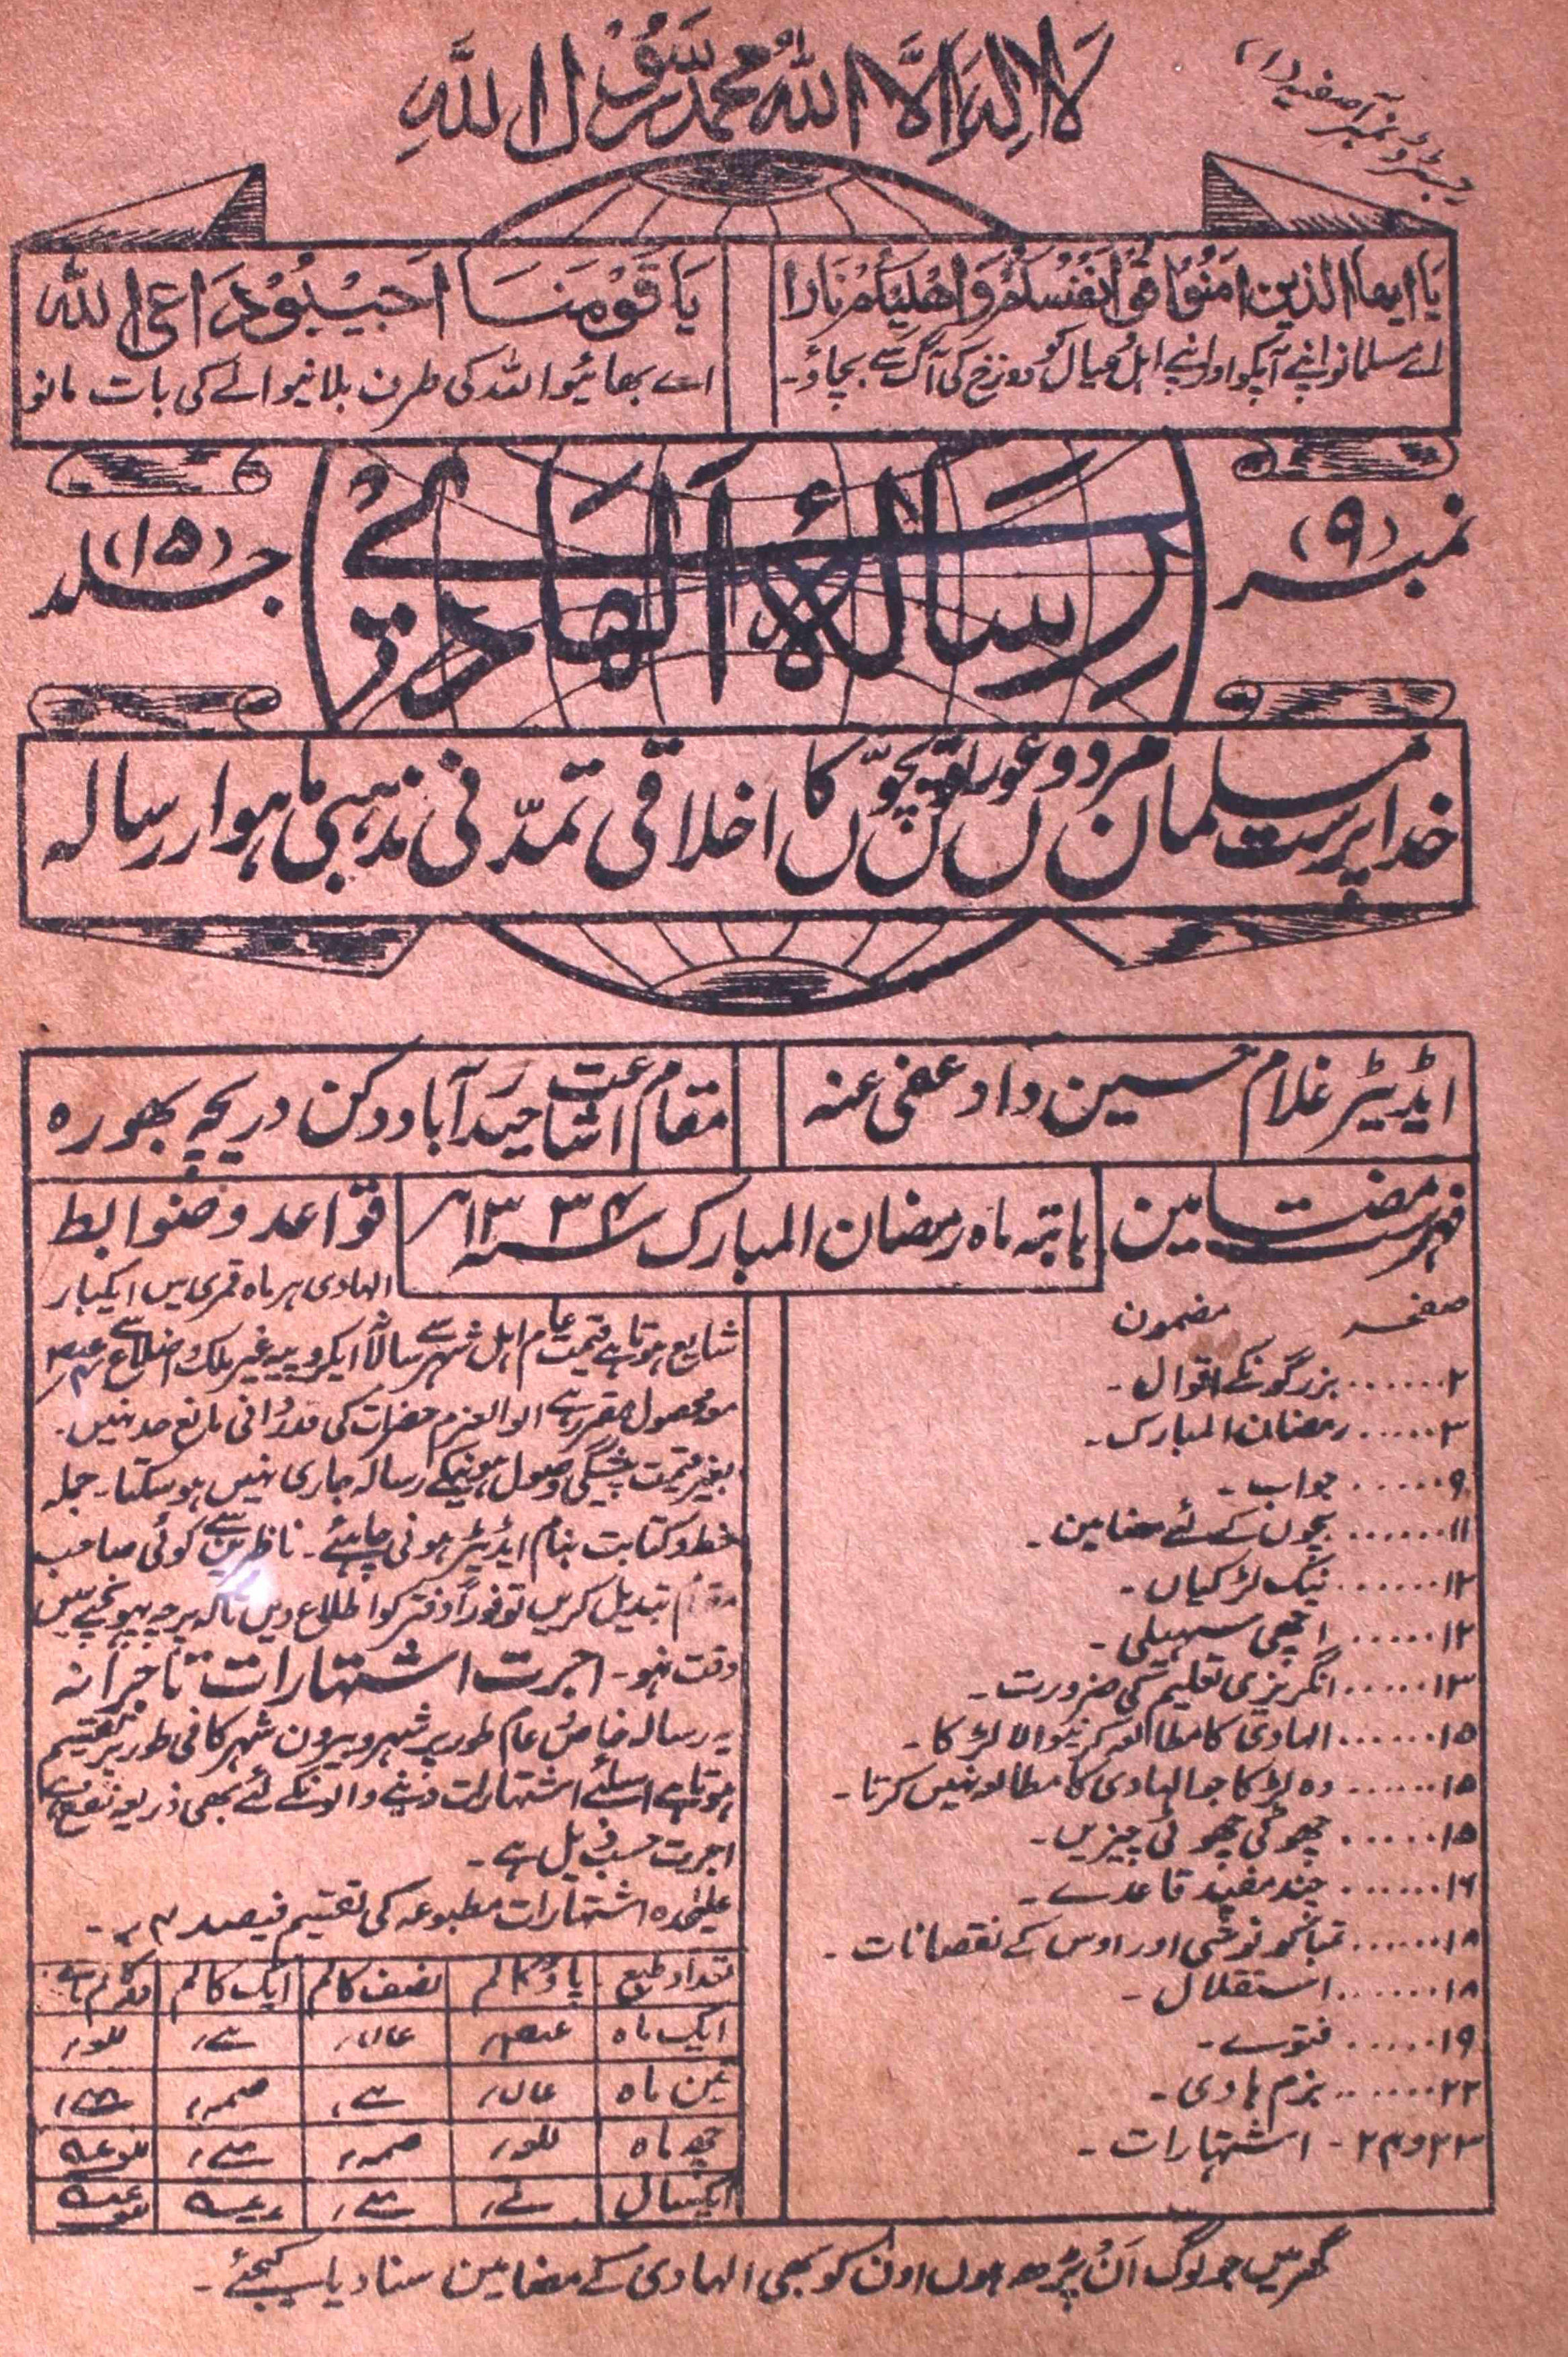 لَا اِلٰهَ اِلَّا اللهُ مُحَمَّدٌ رَسُوْلُ اللهِ
رجسٹرڈ نمبر آصفیہ (۱)
یَا ایھا الذین امَنُوْا قُوْا اَنفُسَکُمْ وَاَھْلِیکُمْ نَارًا
اے مسلمانو اپنے آپکو اور اپنے اہل و عیال کو دوزخ کی آگ سے بچاؤ۔
یَا قَوْمَنَا اَجِیْبُوْا دَاعِیَ اللہِ
اے بھائیو اللہ کی طرف بلانیوالے کی بات مانو
نمبر (۹)
رسالۂ الہادی
جلد (۱۵)
خدا پرست مسلمان مردوں عورتوں بچّوں کا اخلاقی تمدّنی مذہبی ماہوار رسالہ
ایڈیٹر غلام حسین داد عفی عنہ
مقام اشاعت حیدرآباد دکن دریچہ بھورہ
فہرست مضامین
بابتہ ماہ رمضان المبارک ۱۳۳۴
صفحہ مضمون
۲....... بزرگونکے اقوال۔
۳..... رمضان المبارک۔
۹..... جواب۔
۱۱...... بچوں کے لئے مضامین۔
۱۲...... نیک لڑکیاں۔
۱۲..... اچھی سہیلی۔
۱۳..... انگریزی تعلیم کی ضرورت۔
۱۵...... الہادی کا مطالعہ کرنیوالا لڑکا۔
۱۵...... وہ لڑکا جو الہادی کا مطالعہ نہیں کرتا۔
۱۵...... چھوٹی چھوٹی چیزیں۔
۱۶...... چند مفید قاعدے۔
۱۸...... تمباکو نوشی اور اوس کے نقصانات۔
۱۸...... استقلال۔
۱۹..... فتوے۔
۲۲...... بزم ہادی۔
۲۳و۲۴ - اشتہارات۔
قواعد و ضوابط
الہادی ہر ماہ قمری میں ایکبار
شایع ہوتا ہے قیمت عام اہل شہر سے سالانہ ایکروپیہ غیر ملک و اضلاع سے
مع محصول مقرر ہے الوالعزم حضرات کی قدردانی مانع حد نہیں۔
بغیر قیمت پیشگی وصول ہونیکے رسالہ جاری نہیں ہوسکتا۔ جملہ
خط و کتابت بنام ایڈیٹر ہونی چاہئے۔ ناظرین سے کوئی صاحب
مقام تبدیل کریں تو فوراً دفتر کو اطلاع دیں تاکہ پرچہ پہونچنے میں
دقت نہو۔ اجرت اشتہارات تاجرانہ
یہ رسالہ خاص و عام طور پر شہر و بیرون شہر کافی طور پر تقسیم
ہوتا ہے اسلئے اشتہارات دینے والونکے لئے بھی ذریعہ نفع ہے
اجرت حسب ذیل ہے۔
علیٰحدہ اشتہارات مطبوعہ کی تقسیم فیصد ۴ ؍۔
تعداد طبع پاؤ کالم نصف کالم ایک کالم
ایک ماہ
تین ماہ
چھ ماہ
ایکسال
گھر میں جو لوگ اَن پڑھ ہوں اون کو بھی الہادی کے مضامین سنا دیا کیجئے۔